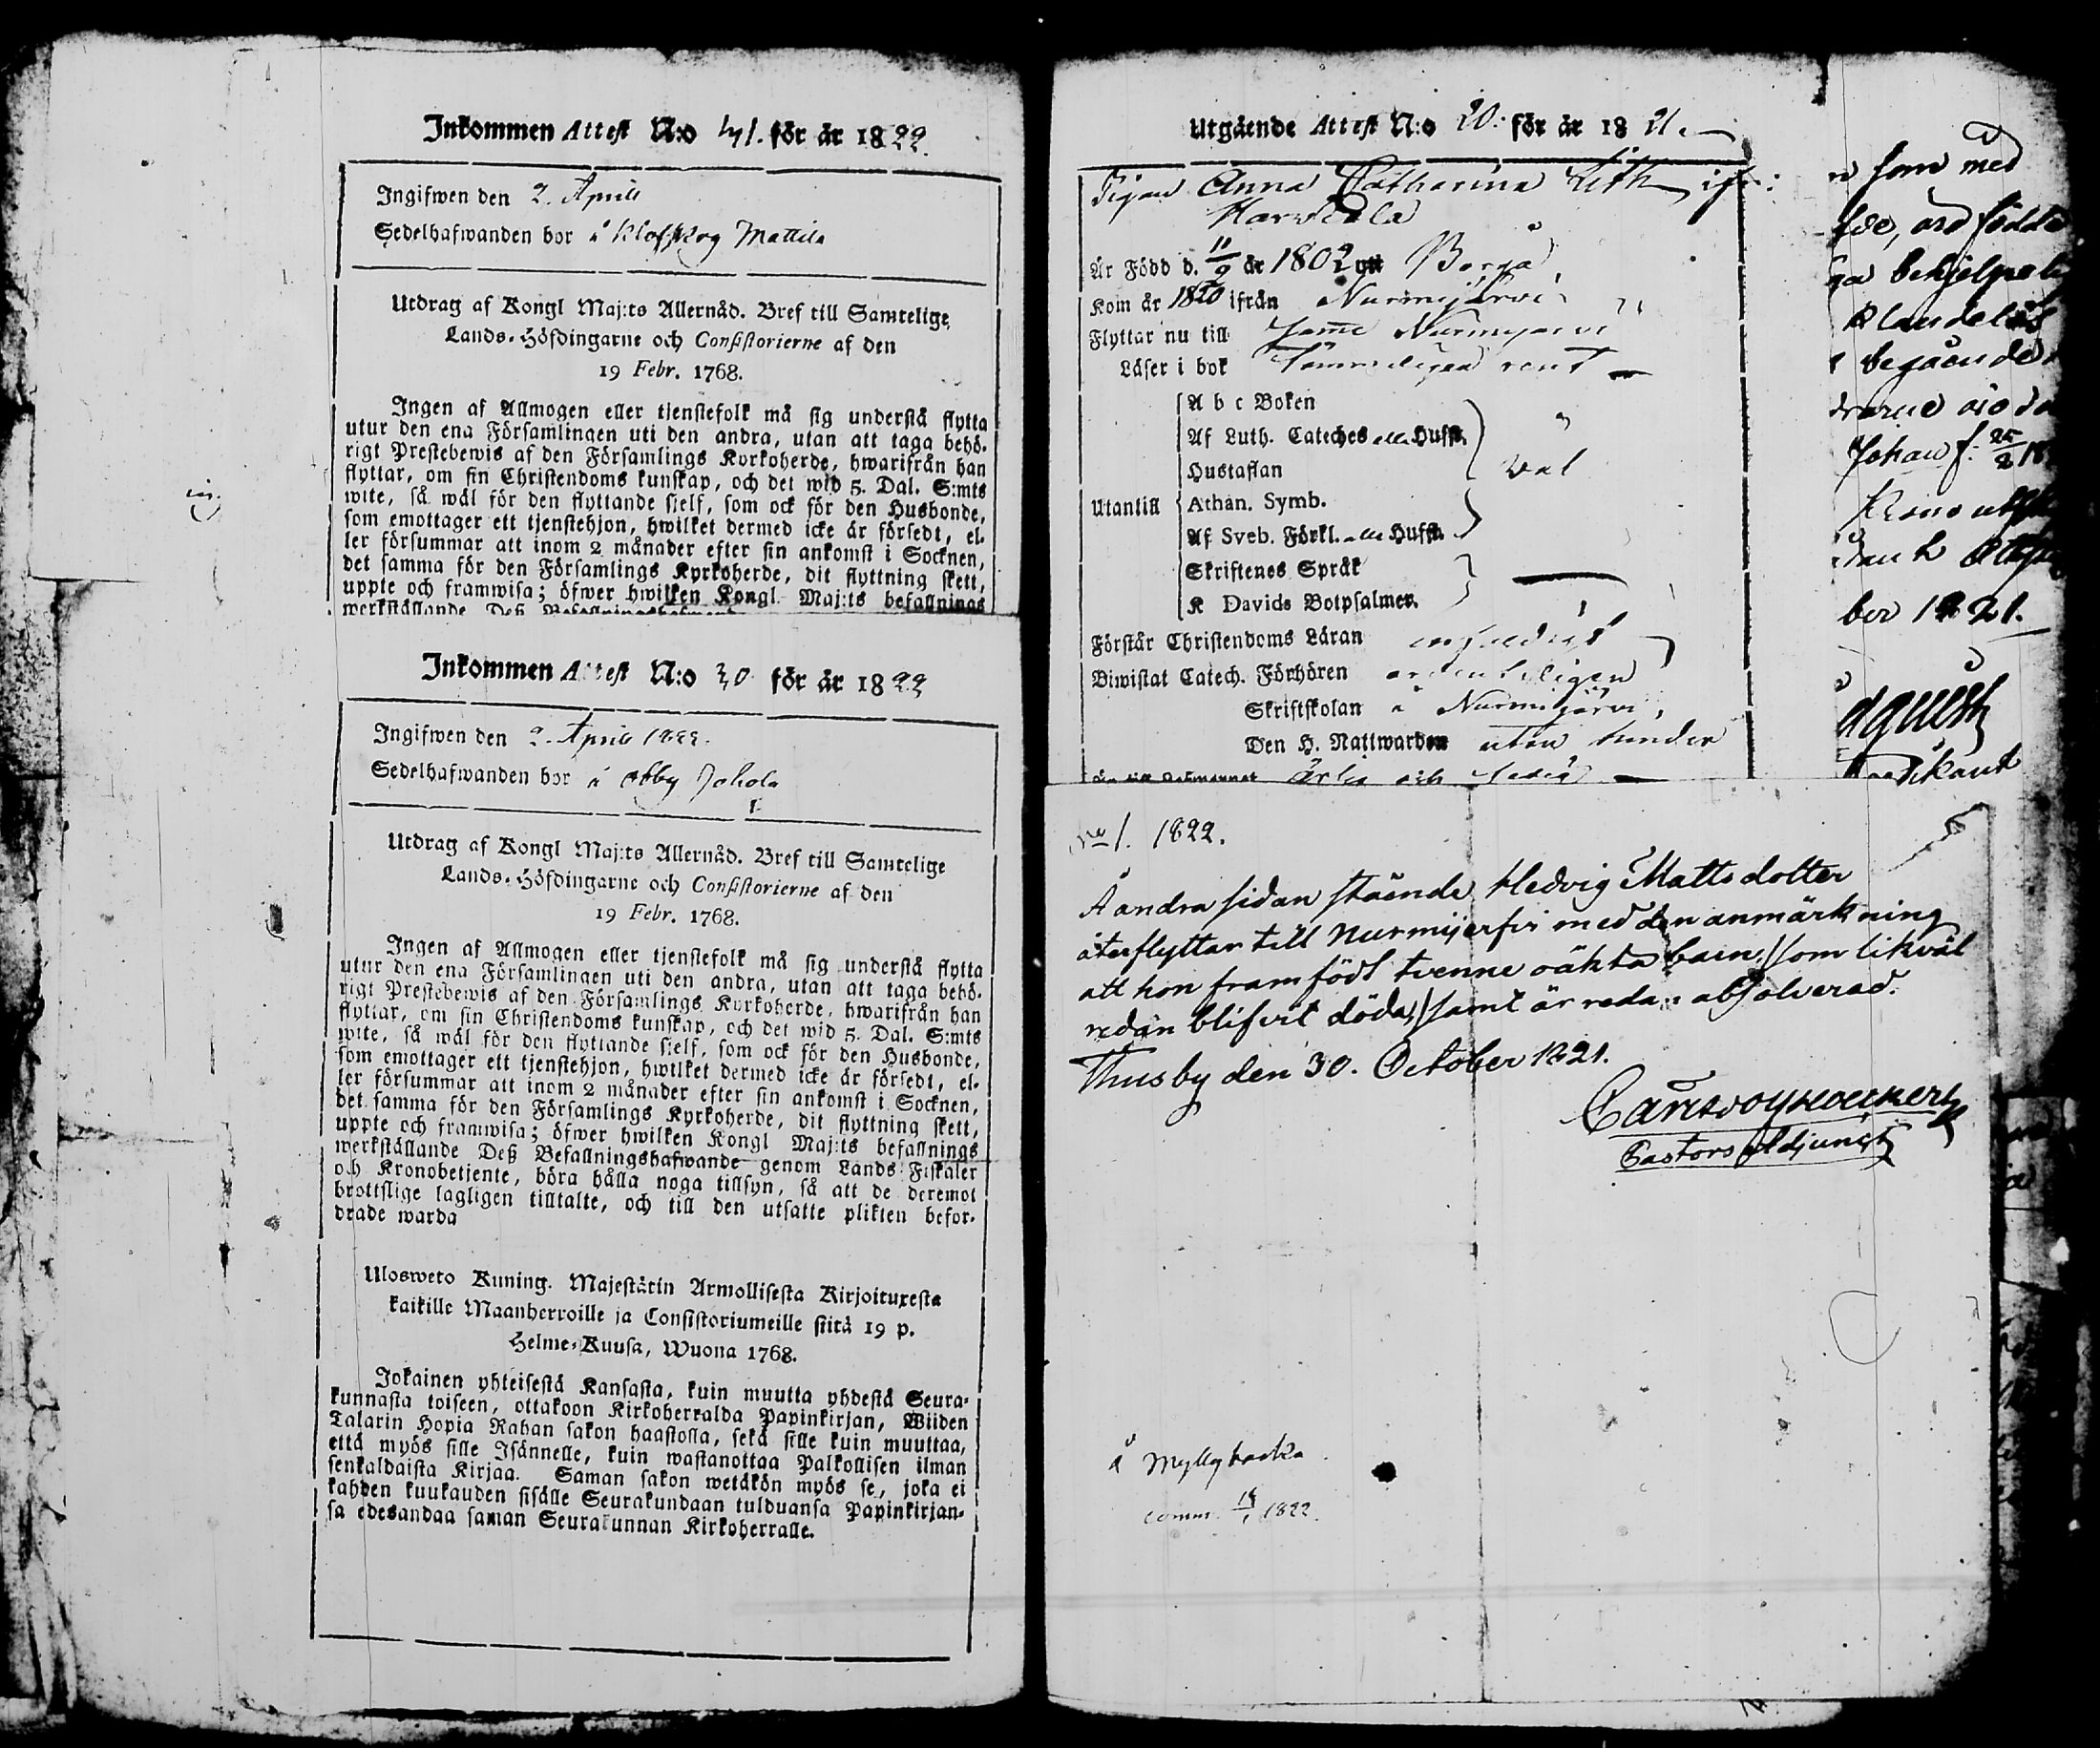 Inkommen Attest N:o 41. för år 1822.
Ingifwen den 2. Aprill
Sedelhafwanden bor å Klofskog Mattila
Utdrag af Kongl Maj:ts Allernåd. Bref till Samtelige
Lands-Höfdingarne och Consistorierne af den
19 Febr. 1768.
Ingen af Allmogen eller tjenstefolk må sig understå flytta
utur den ena Församlingen uti den andra, utan att taga behö-
rigt Prestebewis af den Församlings Kyrkoherde, hwarifrån han
flyttar, om sin Christendoms kunskap, och det wid 5. Dal. S:mts
wite, så wäl för den flyttande sjelf, som ock för den Husbonde,
som emottager ett tjenstehjon, hwilket dermed icke är försedt, el-
ler försummar att inom 2 månader efter sin ankomst i Socknen,
det samma för den Församlings Kyrkoherde, dit flyttning skett,
uppte och framwisa; öfwer hwilken Kongl Maj:ts befallnings
werkställande Deß
Inkommen Attest N:o 30 för år 1822
Ingifwen den 2. Aprill 1822.
Sedelhafwanden bor å Obby Johola
Utdrag af Kongl Maj:ts Allernåd. Bref till Samtelige
Lands-Höfdingarne och Consistorierne af den
19 Febr. 1768.
Ingen af Allmogen eller tjenstefolk må sig understå flytta
utur den ena Församlingen uti den andra, utan att taga behö-
rigt Prestebewis af den Församlings Kyrkoherde, hwarifrån han
flyttar, om sin Christendoms kunskap, och det wid 5. Dal. S:mts
wite, så wäl för den flyttande sjelf, som ock för den Husbonde,
som emottager ett tjenstehjon, hwilket dermed icke är försedt, el-
ler försummar att inom 2 månader efter sin ankomst i Socknen,
det samma för den Församlings Kyrkoherde, dit flyttning skett,
uppte och framwisa; öfwer hwilken Kongl Maj:ts befallnings
werkställande Deß Befallningshafwande genom Lands Fiskaler
och Kronobetjente, böra hålla noga tillsyn, så att de deremot
brottslige lagligen tilltalte, och till den utsatte plikten befor-
drade warda
Ulosweto Kuning. Majestätin Armollisesta Kirjoituxesta
kaikille Maanherroille ja Consistoriumeille siitä 19 p.
Helme-Kuusa, Wuona 1768.
Jokainen yhteisestä Kansasta, kuin muutta yhdestä Seura-
kunnasta toiseen, ottakoon Kirkoherralda Papinkirjan, Wiiden
Talarin Hopia Rahan sakon haastolla, sekä sille kuin muuttaa,
että myös sille Isännelle, kuin wastanottaa Palkollisen ilman
senkaldaista Kirjaa. Saman sakon wetäkön myös se, joka ei
kahden kuukauden sisälle Seurakundaan tulduansa Papinkirjan-
sa edesandaa saman Seurakunnan Kirkoherralle.
Utgående Attest N:o 20. för år 1821.
Pigan Anna Catharina
Är Född d. 11/9 år 1802 Borgå
Kom år 1820 ifrån Nurmijärvi
Flyttar nu till Nurmijärvi
Läser i bok Tämmeligen rent
A b c Boken
Af Luth. Cateches Hufst.
Hustaflan väl
Utantill Athan. Symb.
Af Sveb. Förkl. Hufst.
Skriftenes Språk
K Davids Botpsalmer.
Förstår Christendoms Läran enfaldigt
Biwistat Catech. Förhören ordenteligen
Skriftskolan i Nurmijärvi,
Den H. Nattwarden utan hinder
ärlig och ledig
som med
föe, äro födde
ga
begående
Johan f. 25/2 18
ber 1821.
Prædikant
No 1. 1822.
Å andra sidan stående Hedvig Mattsdotter
återflyttar till Nurmijerfvi med den anmärkning
att hon framfödt tvenne oäkta barn, som likväl
redan blifvit döda, samt är redan absolverad.
Thusby den 30. October 1821.
Pastors Adjunct
å Myllybacka
comm. 14/1 1822.